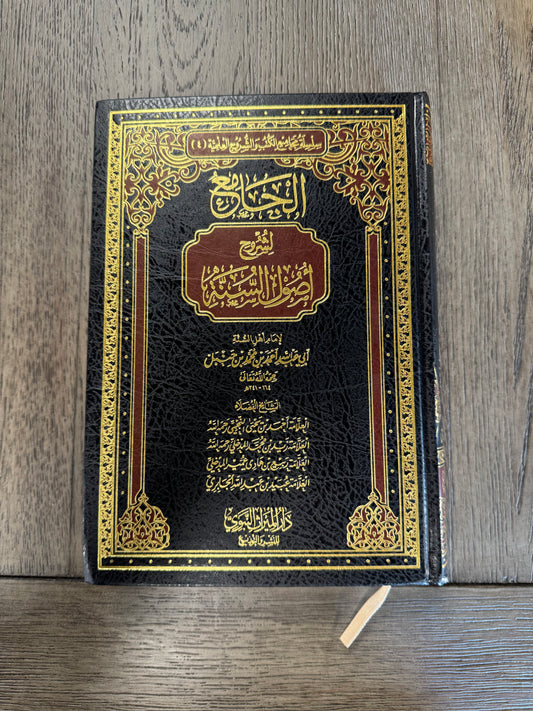 سلسلة مجاميع الكتب والشروح العلمية (٤)
الجامع
لشروح
أصول السنة
لإمام أهل السنة
أبي عبد الله أحمد بن محمد بن حنبل
رحمه الله تعالى
١٦٤ - ٢٤١هـ
المشايخ الفضلاء
العلامة أحمد بن يحيى النجمي رحمه الله
العلامة زيد بن محمد المدخلي رحمه الله
العلامة ربيع بن هادي عمير المدخلي
العلامة عبيد بن عبد الله الجابري
دار الميراث النبوي
للنشر والتوزيع